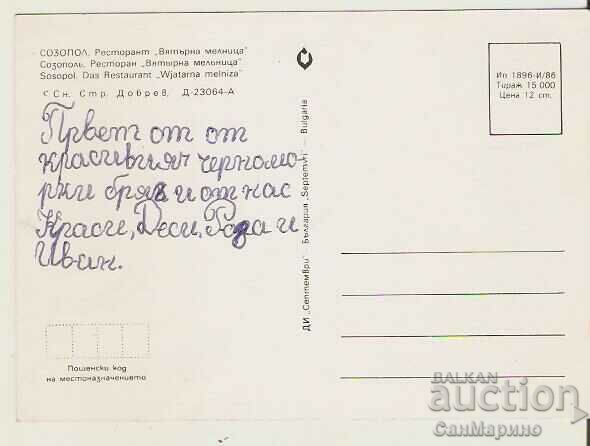 СОЗОПОЛ. Ресторант „Вятърна мелница"
Созополь. Ресторан „Вятърна мельница"
Sosopol. Das Restaurant „Wjatarna melniza"
© Сн. Стр. Добрев, Д-23064-А
Ип 1896-И/86
Тираж 15 000
Цена 12 ст.
Прветъ от от
красивиян черномо-
рки бряг и от нас
Краси, Деси, Роза и
Иван.
ДИ „Септември" България „Septemvri" — Bulgaria
Пощенски код
на местоназначението
BALKAN
auction
СанМарино